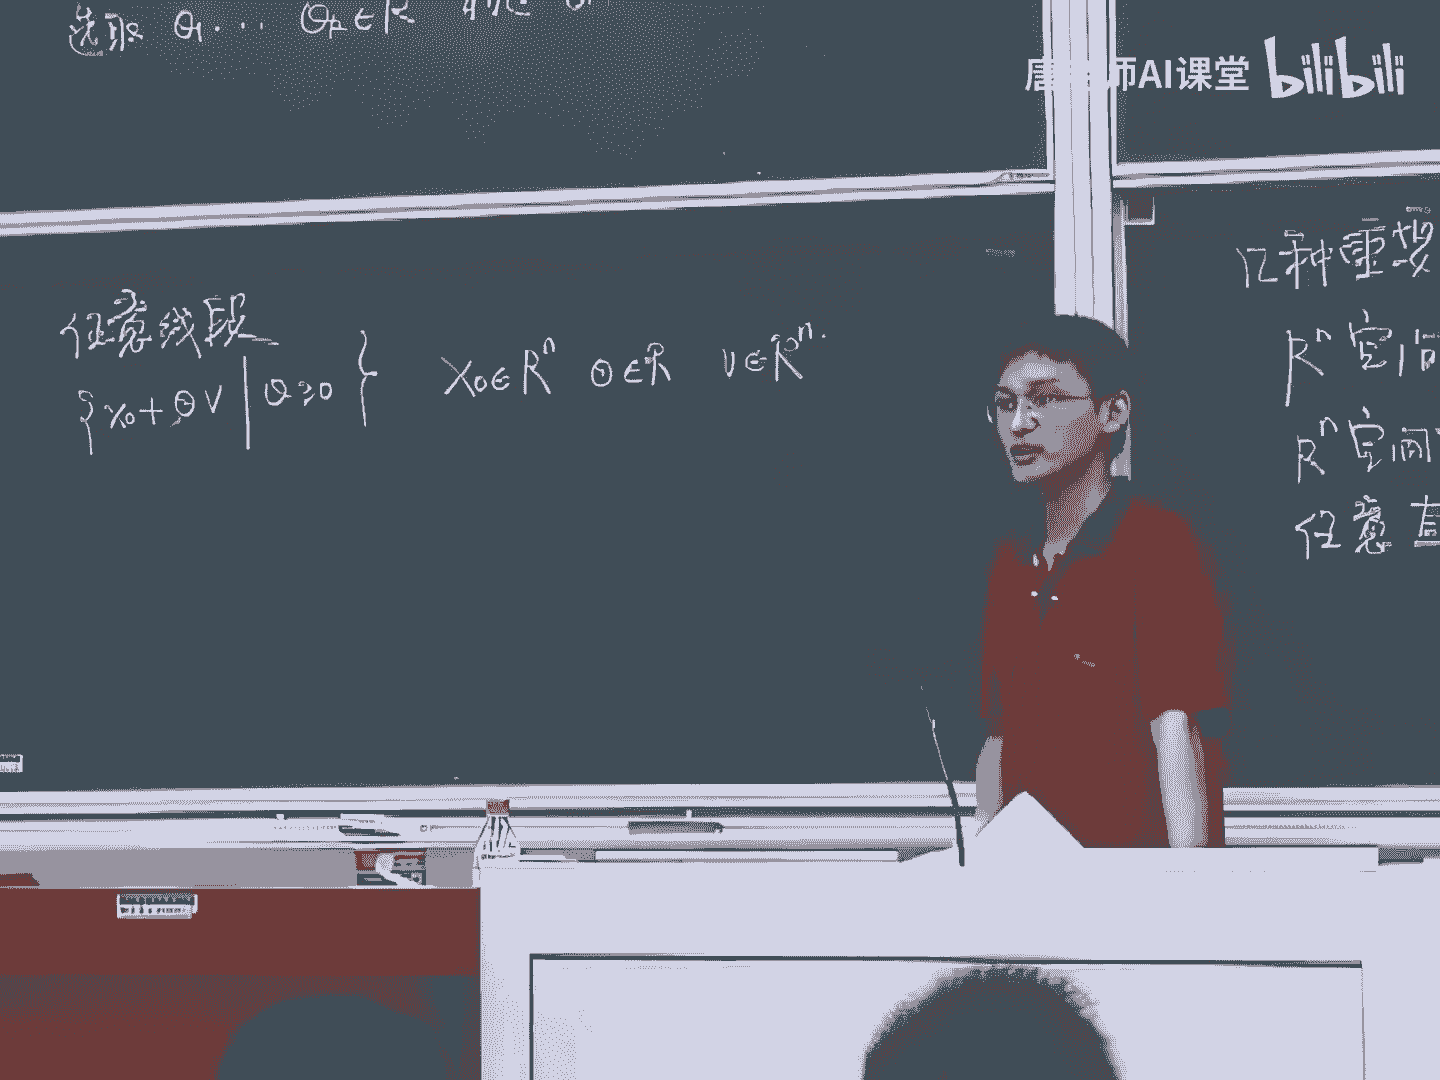 选取 θ₁ … θₖ ∈ R
唐 师AI课堂 bilibili
任意线段
{ x₀ + θv | θ ≥ 0 } x₀ ∈ Rⁿ θ ∈ R v ∈ Rⁿ.
几种重要
Rⁿ 空间
Rⁿ 空间
任意